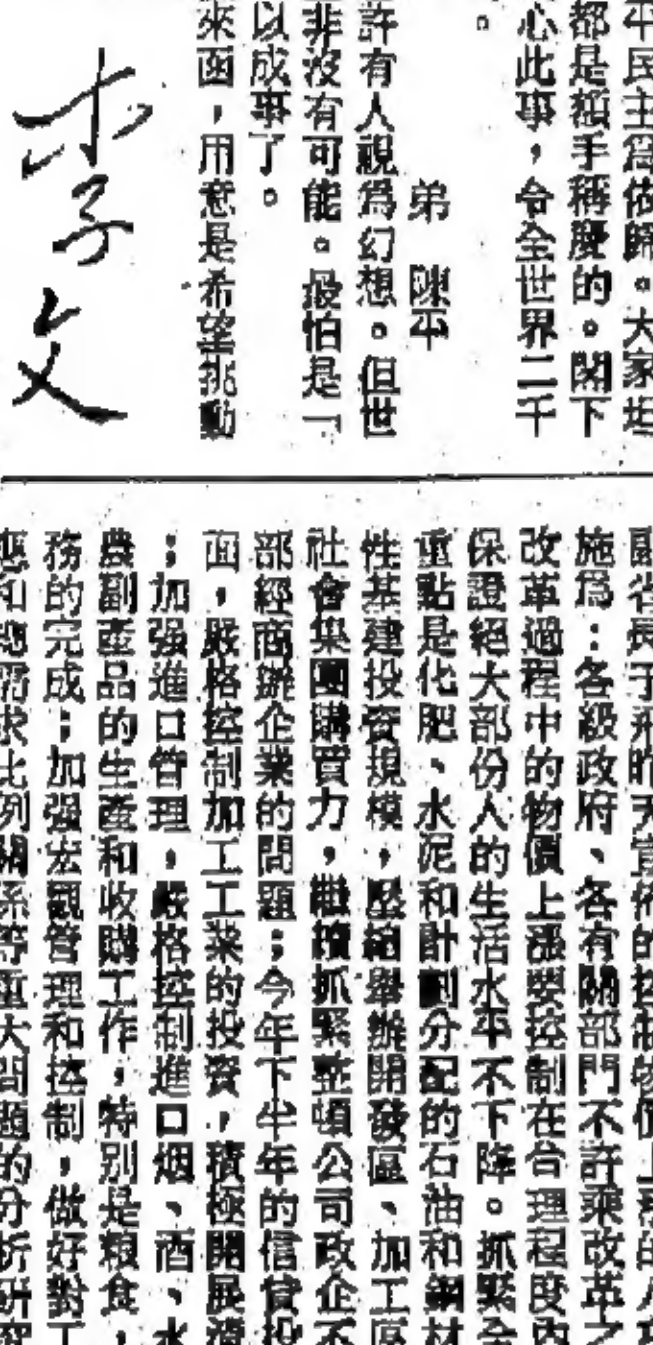 平民主爲依歸。大家坦
都是額手稱慶的。閣下
心此事，令全世界二千
。
弟　陳平
許有人視爲幻想。但世
非沒有可能。最怕是一
以成事了。
來函，用意是希望挑動
李文
副省長于飛昨天宣佈的控制物價上漲的八項
施爲：各級政府、各有關部門不許乘改革之
改革過程中的物價上漲要控制在合理程度內
保證絕大部份人的生活水平不下降。抓緊全
重點是化肥、水泥和計劃分配的石油和鋼材
性基建投資規模，壓縮舉辦開發區、加工區
社會集團購買力，繼續抓緊整頓公司政企不
部經商辦企業的問題；今年下半年的信貸投
面，嚴格控制加工工業的投資，積極開展清
；加强進口管理，嚴格控制進口烟、酒、水
農副產品的生產和收購工作，特別是粮食，
務的完成；加强宏觀管理和控制，做好對工
應和總需求比例關係等重大問題的分析研究